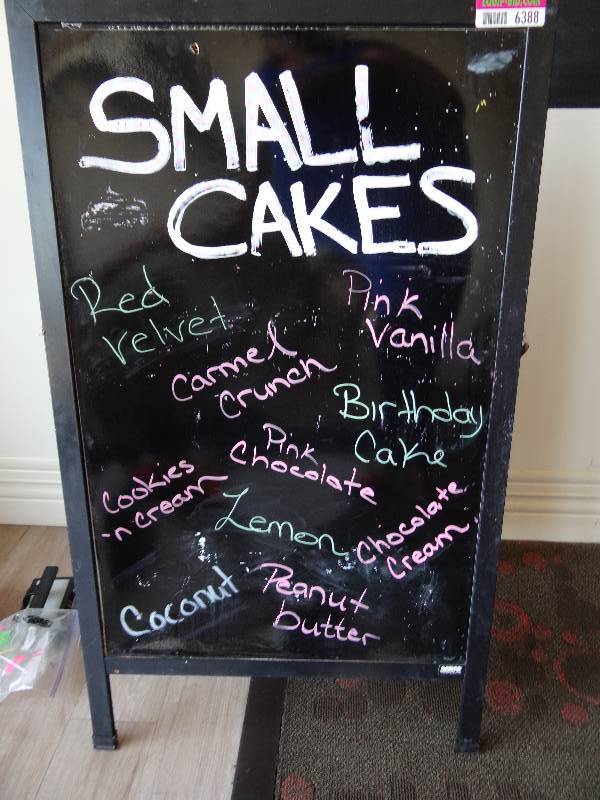 6388
SMALL
CAKES
Red
Velvet
Pink
Vanilla
Carmel
Crunch
Birthday
Cake
Pink
Chocolate
Cookies
'n cream
Lemon
Chocolate
Cream
Coconut
Peanut
butter